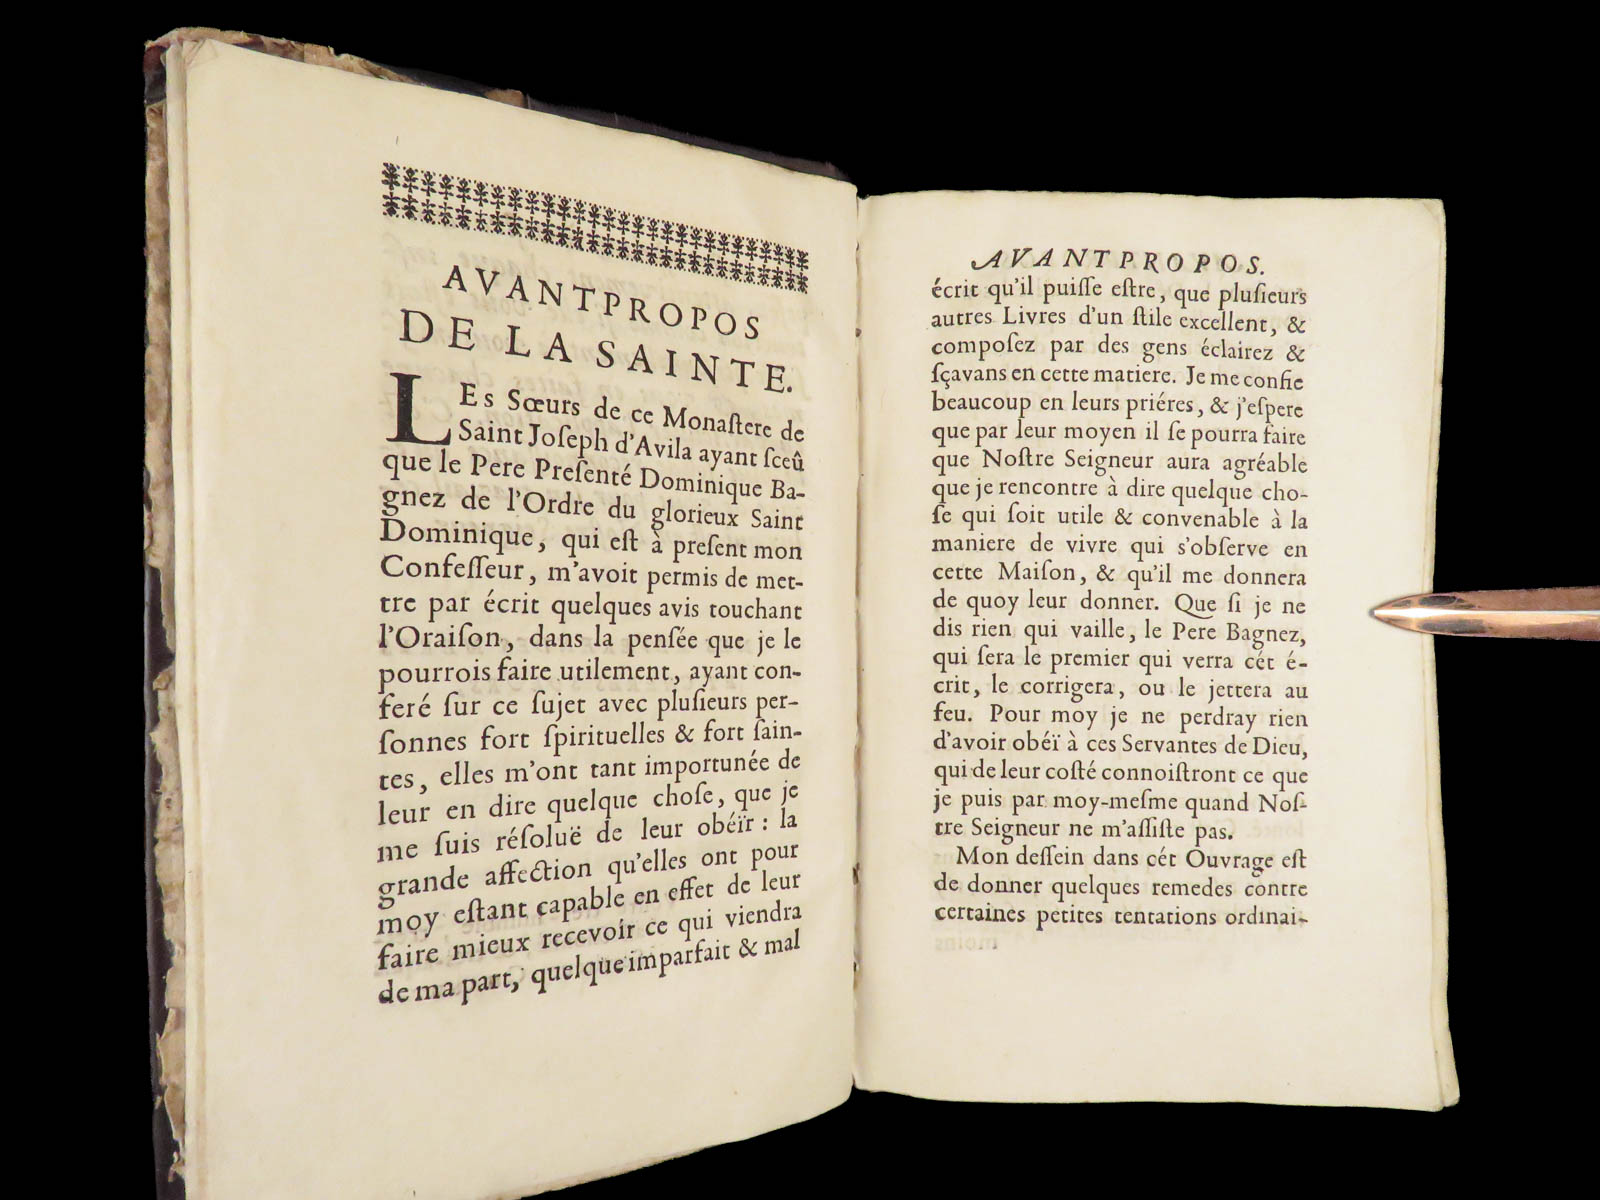 AVANTPROPOS
DE LA SAINTE.
LEs Sœurs de ce Monaſtere de
Saint Joſeph d'Avila ayant ſceû
que le Pere Preſenté Dominique Ba-
gnez de l'Ordre du glorieux Saint
Dominique, qui eſt à preſent mon
Confeſſeur, m'avoit permis de met-
tre par écrit quelques avis touchant
l'Oraiſon, dans la penſée que je le
pourrois faire utilement, ayant con-
feré ſur ce ſujet avec pluſieurs per-
ſonnes fort ſpirituelles & fort ſain-
tes, elles m'ont tant importunée de
leur en dire quelque choſe, que je
me ſuis réſoluë de leur obéïr : la
grande affection qu'elles ont pour
moy eſtant capable en effet de leur
faire mieux recevoir ce qui viendra
de ma part, quelque imparfait & mal
AVANTPROPOS.
écrit qu'il puiſſe eſtre, que pluſieurs
autres Livres d'un ſtile excellent, &
compoſez par des gens éclairez &
ſçavans en cette matiere. Je me confie
beaucoup en leurs priéres, & j'eſpere
que par leur moyen il ſe pourra faire
que Noſtre Seigneur aura agréable
que je rencontre à dire quelque cho-
ſe qui ſoit utile & convenable à la
maniere de vivre qui s'obſerve en
cette Maiſon, & qu'il me donnera
de quoy leur donner. Que ſi je ne
dis rien qui vaille, le Pere Bagnez,
qui ſera le premier qui verra cét é-
crit, le corrigera, ou le jettera au
feu. Pour moy je ne perdray rien
d'avoir obéï à ces Servantes de Dieu,
qui de leur coſté connoiſtront ce que
je puis par moy-meſme quand Noſ-
tre Seigneur ne m'aſſiſte pas.
Mon deſſein dans cét Ouvrage eſt
de donner quelques remedes contre
certaines petites tentations ordinai-